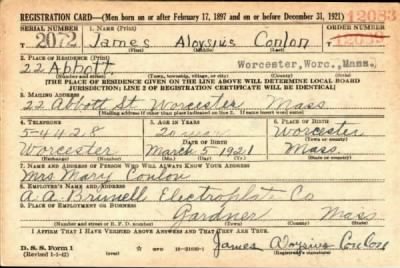 REGISTRATION CARD—(Men born on or after February 17, 1897 and on or before December 31, 1921) 12083
SERIAL NUMBER 1. NAME (Print) ORDER NUMBER
2072 James Aloysius Conlon
(First) (Middle) (Last)
2. PLACE OF RESIDENCE (Print)
22 Abbott Worcester, Worc., Mass.
(Number and street) (Town, township, village, or city) (County) (State)
[THE PLACE OF RESIDENCE GIVEN ON THE LINE ABOVE WILL DETERMINE LOCAL BOARD
JURISDICTION; LINE 2 OF REGISTRATION CERTIFICATE WILL BE IDENTICAL]
3. MAILING ADDRESS
22 Abbott St Worcester Mass
[Mailing address if other than place indicated on line 2. If same insert word same]
4. TELEPHONE 5. AGE IN YEARS 6. PLACE OF BIRTH
5-4428 20 Worcester
DATE OF BIRTH (Town or county)
Worcester March 5 1921 Mass
(Exchange) (Number) (Mo.) (Day) (Yr.) (State or country)
7. NAME AND ADDRESS OF PERSON WHO WILL ALWAYS KNOW YOUR ADDRESS
Mrs Mary Conlon
8. EMPLOYER'S NAME AND ADDRESS
A. A. Brunell Electroplate Co
9. PLACE OF EMPLOYMENT OR BUSINESS
Gardner Mass
(Number and street or R. F. D. number) (Town) (County) (State)
I AFFIRM THAT I HAVE VERIFIED ABOVE ANSWERS AND THAT THEY ARE TRUE.
D. S. S. Form 1
(Revised 1-1-42) (over) James Aloysius Conlon
(Registrant's signature)